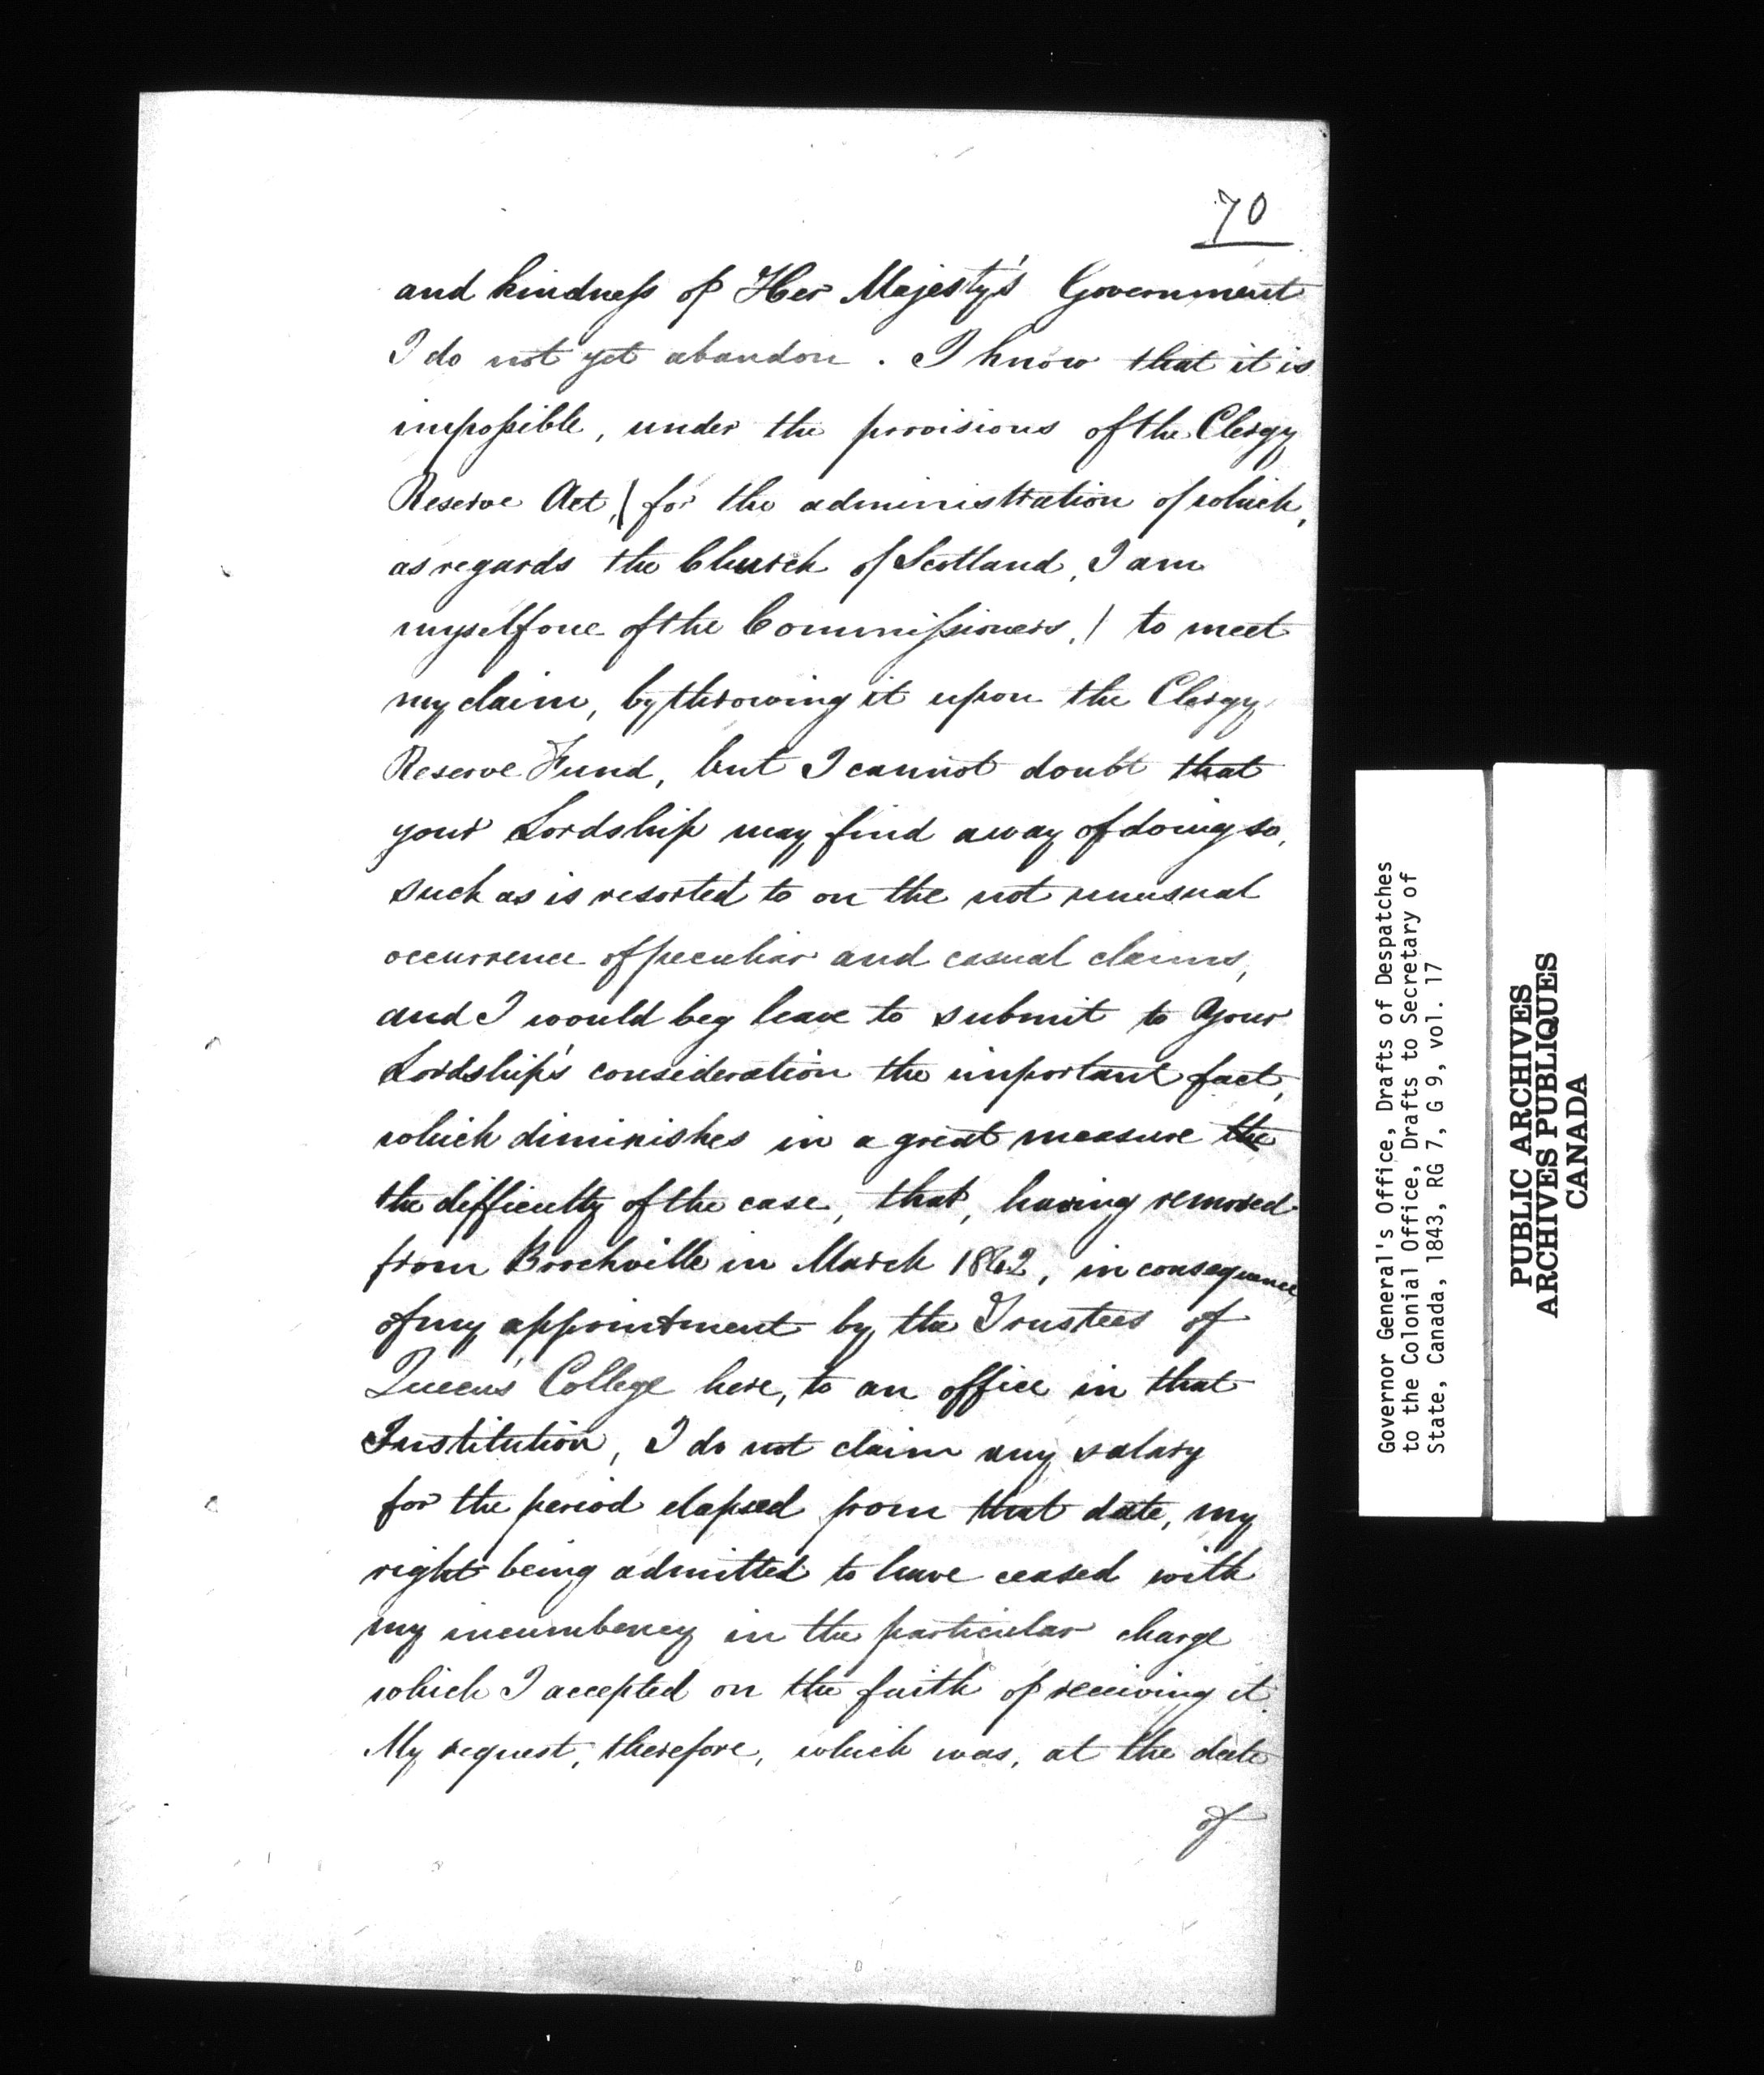 70
and kindness of Her Majesty's Government
I do not yet abandon. I know that it is
impossible, under the provisions of the Clergy
Reserve Act, (for the administration of which,
as regards the Church of Scotland, I am
myself one of the Commissioners,) to meet
my claim, by throwing it upon the Clergy
Reserve Fund, but I cannot doubt that
your Lordship may find away of doing so,
such as is resorted to on the not unusual
occurrence of peculiar and casual claims,
and I would beg leave to submit to Your
Lordship's consideration the important fact,
which diminishes in a great measure the
the difficulty of the case, that, having removed
from Brockville in March 1842, in consequence
of my appointment by the Trustees of
Queens' College here, to an office in that
Institution, I do not claim any salary
for the period elapsed from that date, my
right being admitted to have ceased with
my incumbency in the particular charge
which I accepted on the faith of receiving it.
My request, therefore, which was, at the date
of
Governor General's Office, Drafts of Despatches
to the Colonial Office, Drafts to Secretary of
State, Canada, 1843, RG 7, G 9, vol. 17
PUBLIC ARCHIVES
ARCHIVES PUBLIQUES
CANADA